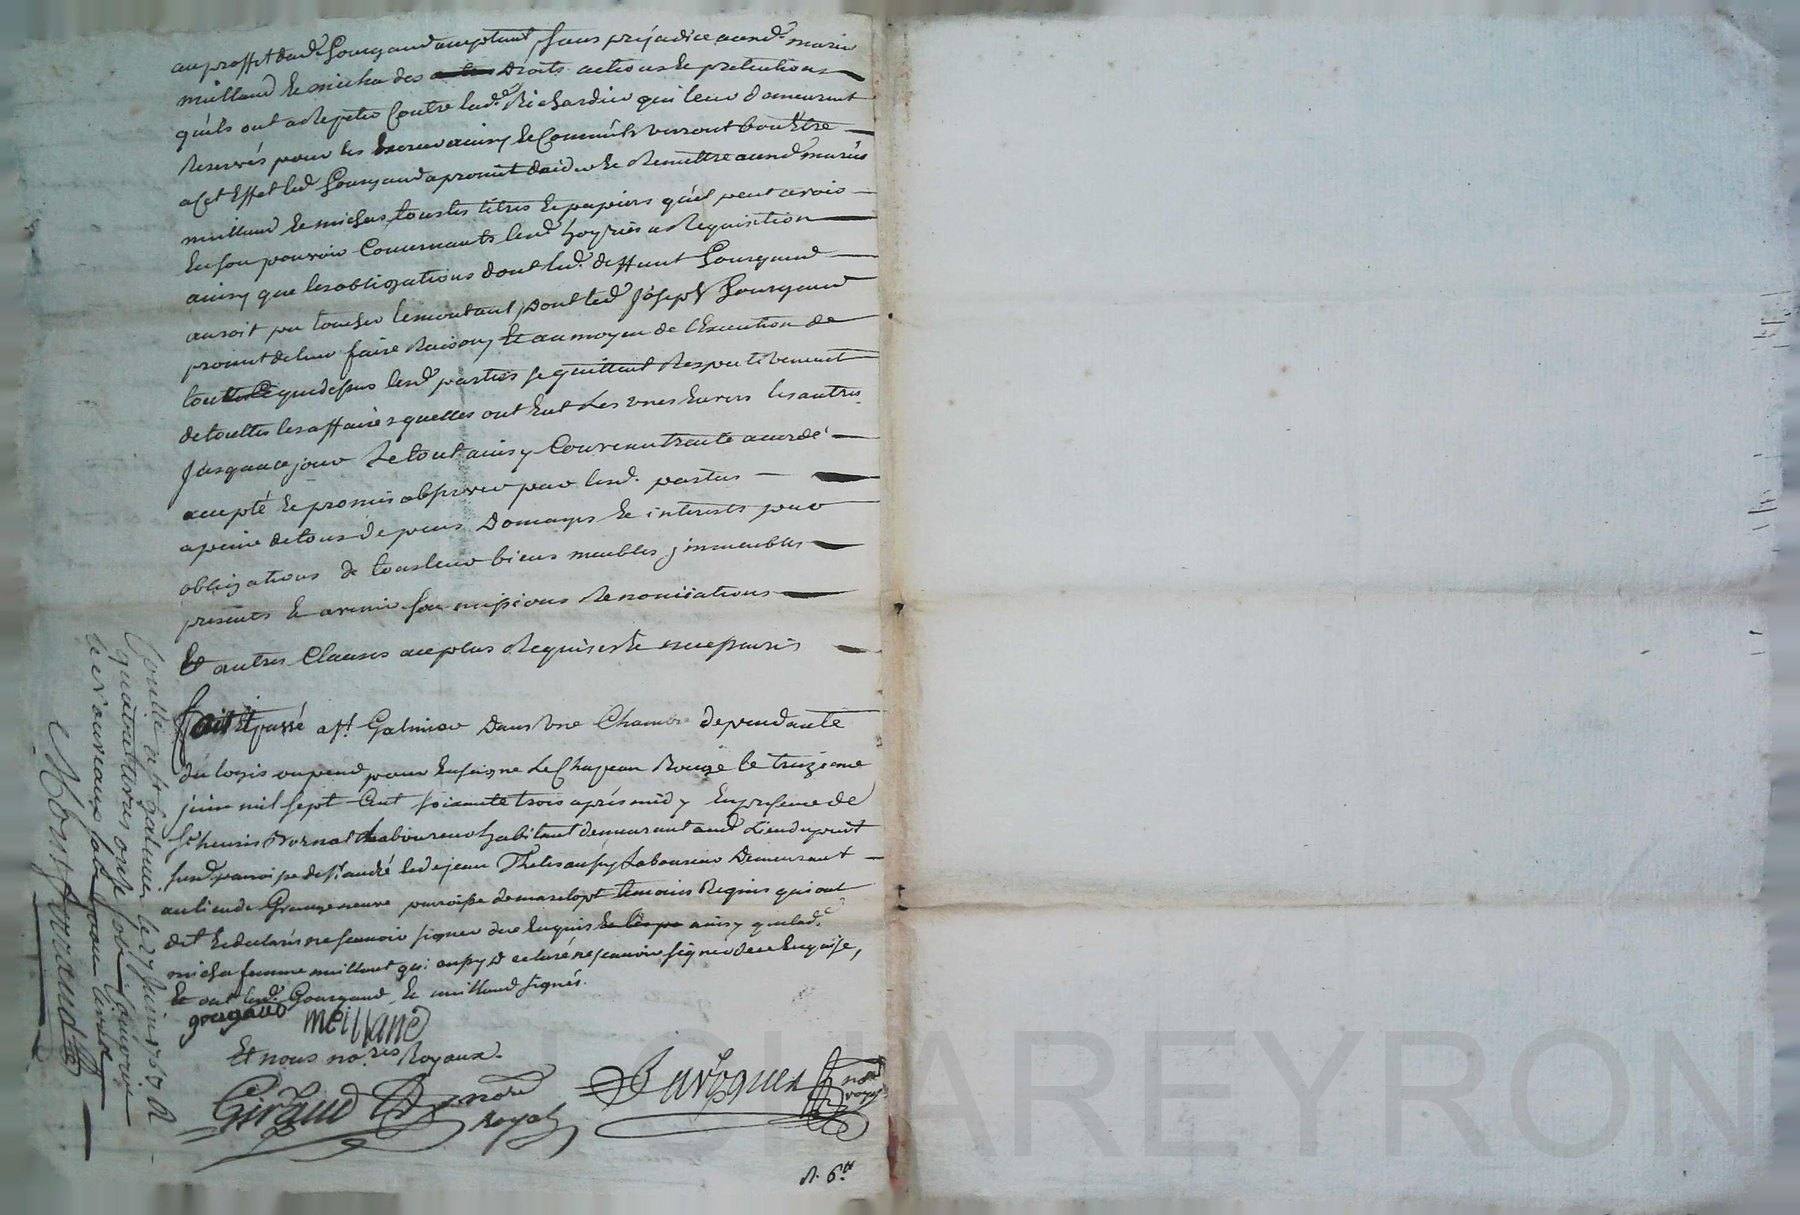 au proffit dud. Gourgaud acceptant, sans prejudice auxd. mariés
meilland & micha des droits actions & pretentions
quils ont a repeter Contre lad. Richardier qui leur demeurent
Reservés pour les Exercer ainsy & Comme ils verront bon Etre
a Cet Effet led. Gourgaud a promit daider & Remettre auxd. mariés
meilland & michas tous les titres & papiers quil peut avoir
En son pouvoir Concernants lesd. hoyries a Requisition
ainsy que les obligations dont led. deffunt Gourgaud
auroit pu toucher le montant, Dont led. Joseph Gourgaud
promit de leur faire Raison, & au moyen de l'Execution de
tout Ce que dessus lesd. parties se quittent Respectivement
de touttes les affaires quelles ont Eut Les unes Envers les autres
Jusqua ce jour Le tout ainsy Convenu traité accordé
accepté & promis observer par lesd. parties
a peine de tous depens Domages & interests par
obligations de tous leur biens meubles, immeubles
presents & avenir soumissions Renonciations
Et autres Clauses au plus Requises & necessaires
Fait Et passé a St. Galmier Dans Une Chambre dependante
du logis ou pend pour Enseigne Le Chapeau Rouge le treizieme
juin mil sept Cent soixante trois aprés midy En presence de
Sr. henris Bornat Laboureur habitant demeurant aud. Lieu
paroisse de St. andré & de jean Thelis aussy Laboureur Demeurant
au lieu de Grangeneuve paroisse de temoins Requis qui ont
dit & declarés ne scavoir signer de ce Enquis ainsy que lad.
micha femme meilland qui aussy a declaré ne scavoir signer de ce Enquise,
& ont lesd. Gourgaud & meilland signés.
gourgaud meilland
Et nous nores. Royaux.
Giraud nore. Royal
nore. royal
R. 6tt
Conttrollé a St Galmier le 27 juin 1763 R
quatre livres onze sols
Monferrand
CHAREYRON